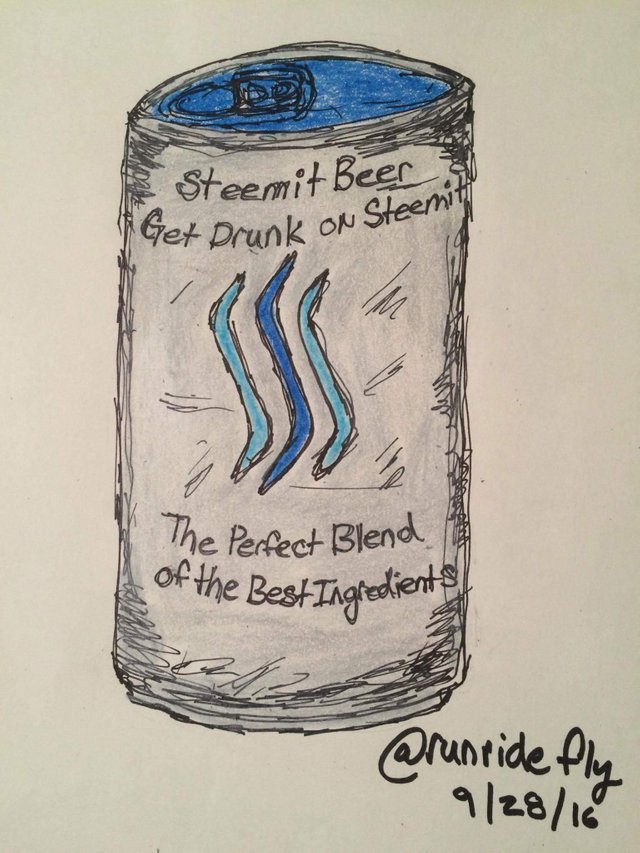 Steemit Beer
Get Drunk on Steemit
The Perfect Blend
of the Best Ingredients
@runridefly
9/28/16